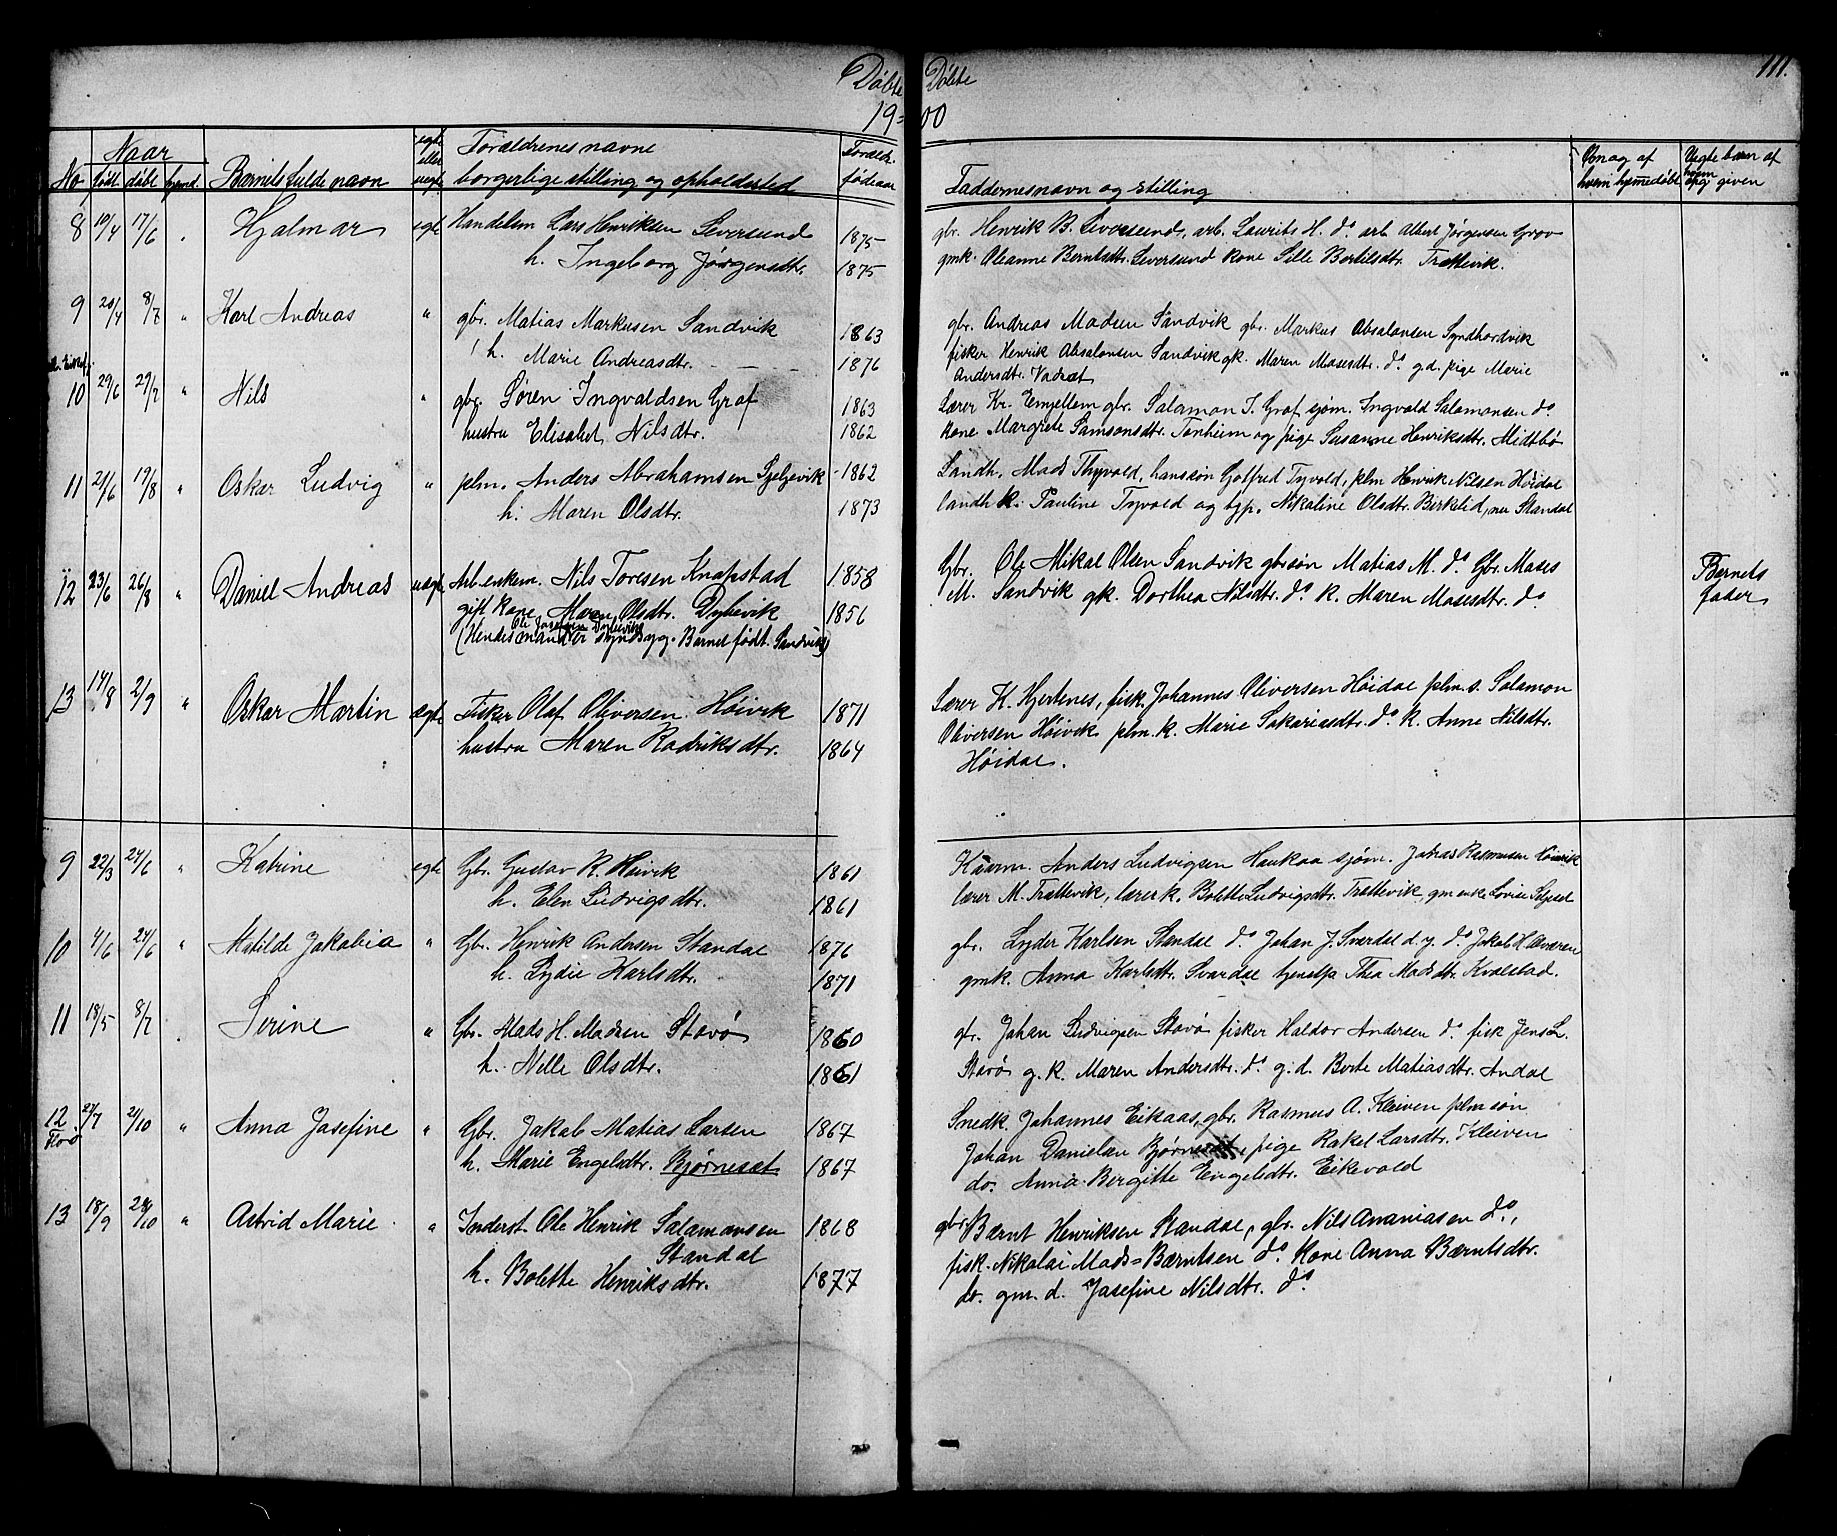 Døbte
19-
Døbte
00
111.
No
Naar
født døbt hjemd
Barnets fulde navn
egte eller uegte
Forældrenes navne
borgerlige stilling og opholdssted
Forældr. fødaar
Faddernes navn og stilling
Om og af hvem hjemmedøbt
Uegte barn af hvem opgiven
8 19/4 17/6 Hjalmar egte Handelsm Lars Henriksen Seversund 1875
h. Ingeborg Jørgensdtr. 1875
gbr. Henrik B. Seversund, arb. Laurits H. do arb Albert Jørgensen Grov
gmk. Oleanne Berntsdtr. Seversund kone Sille Bertilsdtr. Trættevik.
9 20/4 8/7 " Karl Andreas " gbr. Matias Markusen Sandvik 1863
h. Marie Andreasdtr. - - - 1876
gbr. Andreas Madsen Sandvik gbr. Markus Absalonsen Syndhordvik
fisker Henrik Absalonsen Sandvik gk. Maren Mosesdtr. do g.d. pige Marie
Andersdtr. Vadset
10 29/6 29/7 " Nils " gbr. Søren Ingvaldsen Graf 1863
hustru Elisabet Nilsdtr. 1862
Lærer Kr. Emjellem gbr. Salamon I. Graf sjøm. Ingvald Salamonsen do
kone Margrete Samsonsdtr. Tonheim og pige Susanne Henriksdtr. Midtbø
11 21/6 19/8 " Oskar Ludvig " plm. Anders Abrahamsen Sjeljevik 1862
h. Maren Olsdtr. 1873
Landh. Mads Thyvold, hans søn Gotfred Tyvold, plm Henrik Nilsen Høidal
landh k. Pauline Tyvold og tjp. Nikoline Olsdtr. Birkelid, nu Standal
12 23/6 26/8 " Daniel Andreas uægte Arb. enkem. Nils Toresen Knapstad 1858
gift kone Maren Olsdtr. Dybevik 1856
Ole Josefsen Dybevik
(Hendes mand er sindsyg. Barnet født i Sandvik)
Gbr. Ole Mikal Olsen Sandvik gbrsøn Matias M. do Gbr. Moses
M. Sandvik gk. Dorthea Nilsdtr. do k. Maren Mosesdtr. do
Barnets fader
13 14/8 2/9 " Oskar Martin ægte Fisker Olaf Oliversen Høivik 1871
hustru Maren Radriksdtr. 1864
Lærer K. Hjertenes, fisk. Johannes Oliversen Høidal plm. s. Salamon
Oliversen Høivik plm. k. Marie Sakariasdtr. do k. Anne Nilsdtr.
Høidal.
9 22/3 24/6 " Katrine egte Gbr. Gustav R. Høivik 1861
h. Elen Ludvigsdtr. 1861
Kaarm. Anders Ludvigsen Haukaa sjøm. Johas Rasmusen Høivik
lærer M. Trættevik, lærer k. Bolette Ludvigsdtr. Trættevik, gm enke Lovise
10 4/6 24/6 " Matilde Jakobia " Gbr. Henrik Andersen Standal 1876
h. Lydie Karlsdtr. 1871
gbr. Lyder Karlsen Standal do Johan J. Svardal d.y. do Jakob H. Aværen
gmk. Anna Karlsdtr. Svardal tjenstp Thea Madsdtr. Kvalstad.
11 18/5 8/7 . Serine " Gbr. Mads H. Madsen Stavø 1860
h. Nille Olsdtr. 1861
gbr. Johan Ludvigsen Stavø fisker Haldor Andersen do fisk Jens L.
Stavø g.k. Maren Andersdtr. do g.d. Berte Matiasdtr. Andal
12 27/7 21/10 " Anna Josefine " Gbr. Jakob Matias Larsen 1867
Florø
h. Marie Engelsdtr. Bjørneset 1867
Snedk. Johannes Eikaas, gbr. Rasmus A. Kleiven plm søn
Johan Danielsen Bjørneset, pige Rakel Larsdtr. Kleiven
do. Anna Bergitte Engelsdtr. Eikevold
13 18/9 28/10 " Astrid Marie " Inderst. Ole Henrik Salamonsen 1868
Standal
h. Bolette Henriksdtr. 1877
gbr Bærnt Henriksen Standal, gbr. Nils Ananiasen do,
fisk. Nikolai Mads=Bærntsen do Kone Anna Bærntsdtr.
do. gm. d. Josefine Nilsdtr. do